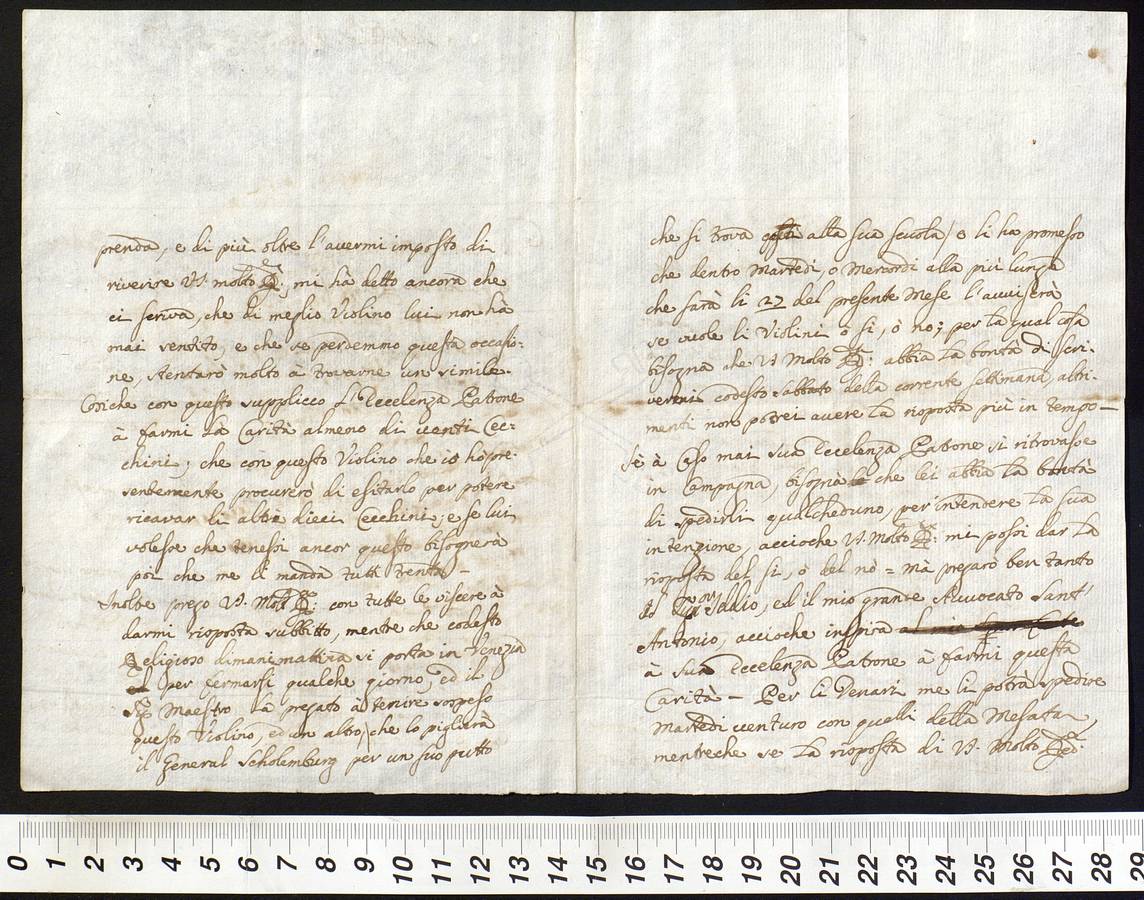 prenda, e di più oltre l'avermi imposto di
riverire VS. molto R:, mi hà detto ancora che
ci scriva, che di meglio Violino lui non hà
mai sentito, e che se perdemmo questa occasio:
ne, stentarò molto à trovarne un simile.
Cosiche con questo supplicco L'Eccelenza Patrone
à farmi La Carità almeno di venti Cec:
chini; che con questo Violino che io hò pre:
sentemente procurerò di esitarlo per potere
ricavar li altri dieci Cecchini, e se lui
volesse che tenessi ancor questo bisognerà
poi che me li manda tutti trenta –
Inoltre prego VS. Molt R: con tutte le viscere à
darmi risposta subbitto, mentre che codesto
Religioso dimani mattina si porta in Venezia
per fermarsi qualche giorno, ed il
Sig: Maestro La pregato à tenire sospeso
questo Violino, ed un altro, che lo pigliarà
il General Scholemburg per un suo putto
che si trova alla sua scuola, e li ha promesso
che dentro Martedì, o Mercordì alla più lunga
che sarà li 27 del presente Mese l'avviserà
se vuole li Violini ò si, ò no; per la qual cosa
bisogna che VS Molto R: abbia La bontà di scri:
vermi codesto sabbato della corrente settimana, altri:
menti non potrei avere La risposta più in tempo –
Sè à Caso mai sua Eccelenza Patrone si ritrovasse
in Campagna, bisognà che lei abbia La bontà
di spedirli qualcheduno, per intendere La sua
intenzione, accioche VS. Molto R: mi possi dar La
risposta del si, ò del nò = mà pregarò ben tanto
il Iddio, ed il mio grande Avvocato Sant'
Antonio, accioche inspira
à sua Eccelenza Patrone à farmi questa
Carità – Per li Denari me li potrà spedire
Martedì venturo con quelli della Mesata,
mentreche se La risposta di VS. Molto R: